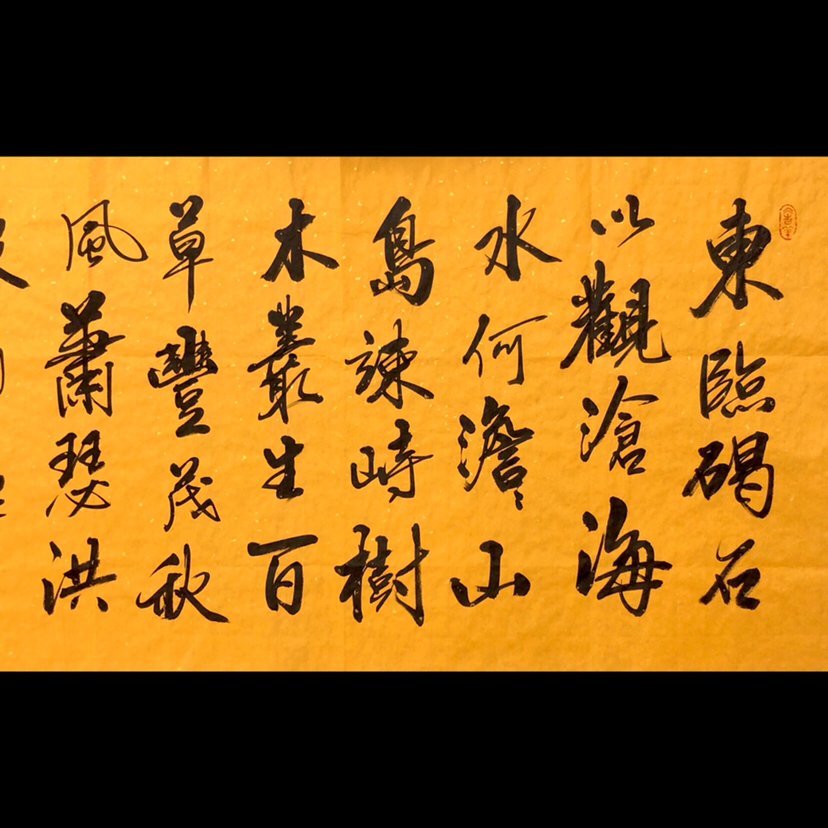 東臨碣石
以觀滄海
水何澹々山
島竦峙樹
木叢生百
草豐茂秋
風蕭瑟洪